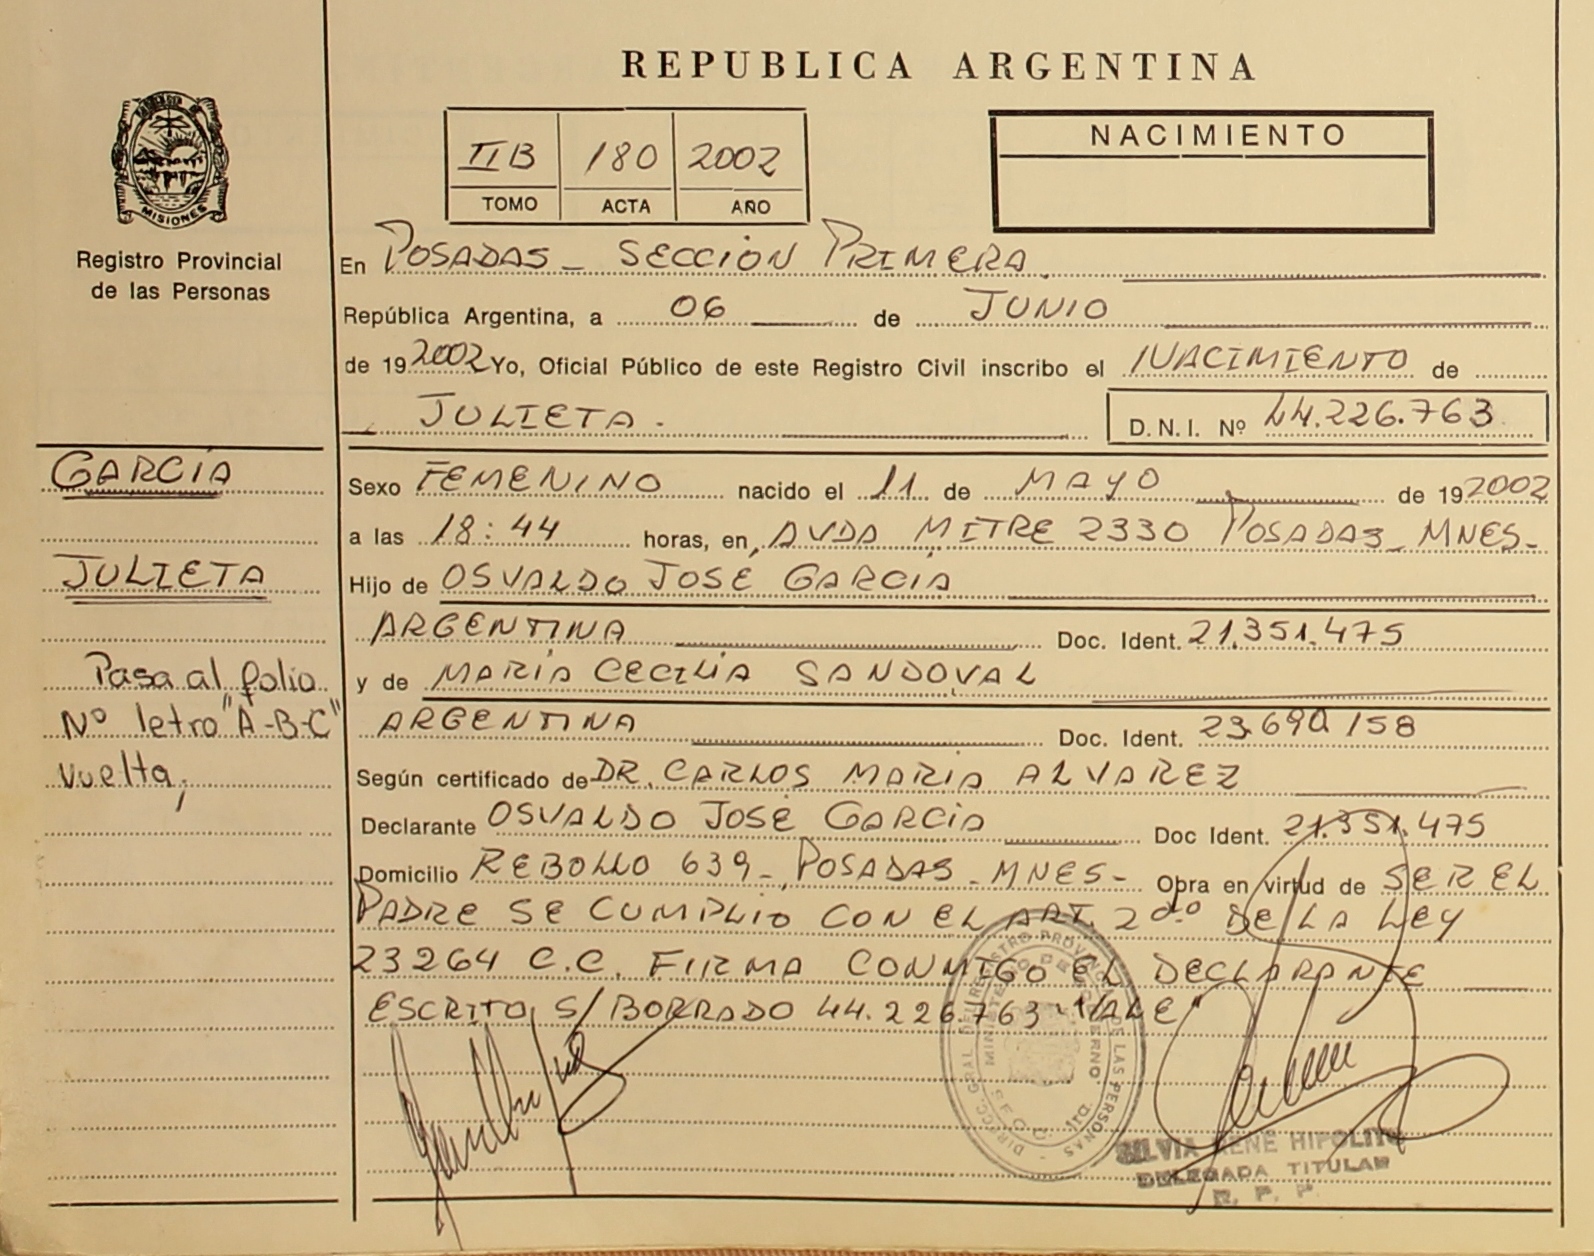 REPUBLICA ARGENTINA
MISIONES
Registro Provincial
de las Personas
IIB 180 2002
TOMO ACTA AÑO
NACIMIENTO
En POSADAS - SECCION PRIMERA
República Argentina, a 06 de JUNIO
de 19 2002 Yo, Oficial Público de este Registro Civil inscribo el NACIMIENTO de
JULIETA.
D.N.I. Nº 44.226.763
GARCÍA
JULIETA
Pasa al folio
Nº letra "A-B-C"
vuelta,
Sexo FEMENINO nacido el 11 de MAYO de 19 2002
a las 18:44 horas, en AVDA MITRE 2330 POSADAS - MNES-
Hijo de OSVALDO JOSÉ GARCÍA
ARGENTINA Doc. Ident. 21.351.475
y de MARÍA CECILIA SANDOVAL
ARGENTINA Doc. Ident. 23.690.158
Según certificado de DR. CARLOS MARIA ALVAREZ
Declarante OSVALDO JOSÉ GARCÍA Doc Ident. 21.351.475
Domicilio REBOLLO 639 - POSADAS - MNES- Obra en virtud de SER EL
PADRE SE CUMPLIO CON EL ART. 2do DE LA LEY
23264 C.C. FIRMA CONMIGO EL DECLARANTE
ESCRITO S/BORRADO 44.226.763 "VALE"
DIRECC. GRAL. DEL REGISTRO PROVINCIAL DE LAS PERSONAS
MINISTERIO DE GOBIERNO
SILVIA RENE HIPOLITO
DELEGADA TITULAR
R. P. P.